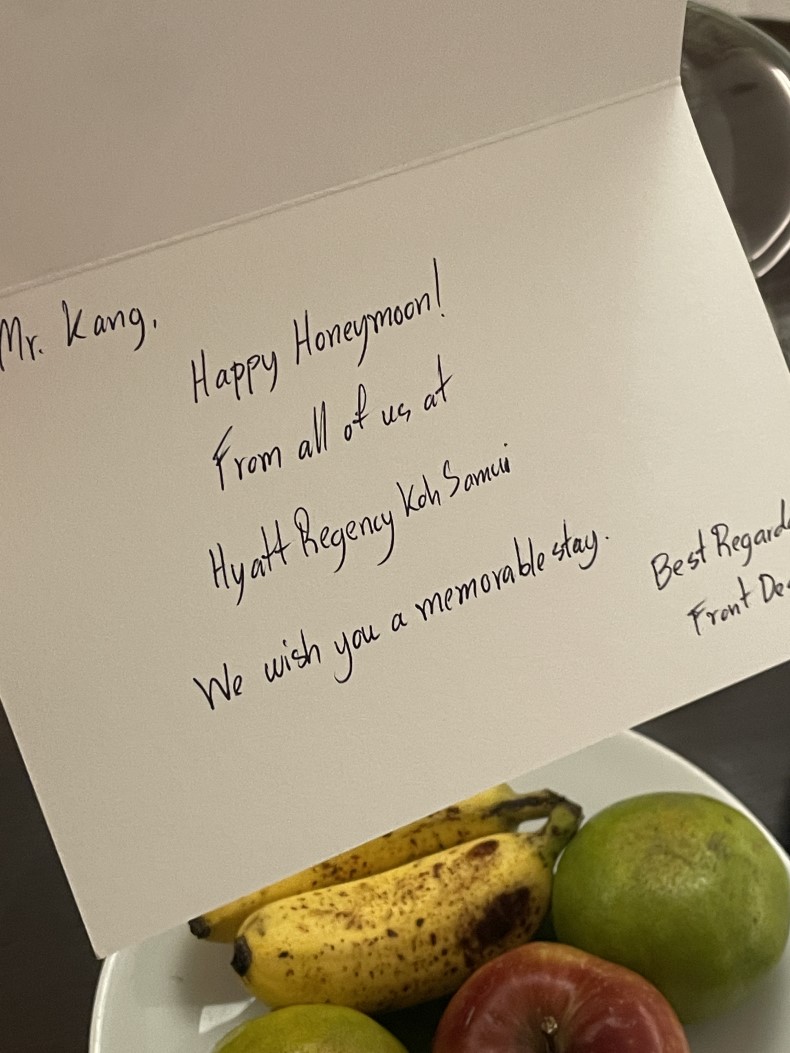 Mr. Kang,
Happy Honeymoon!
From all of us at
Hyatt Regency Koh Samui
We wish you a memorable stay.
Best Regard
Front De